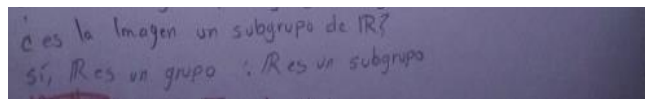 ¿es la Imagen un subgrupo de ℝ?
sí, ℝ es un grupo ∴ ℝ es un subgrupo